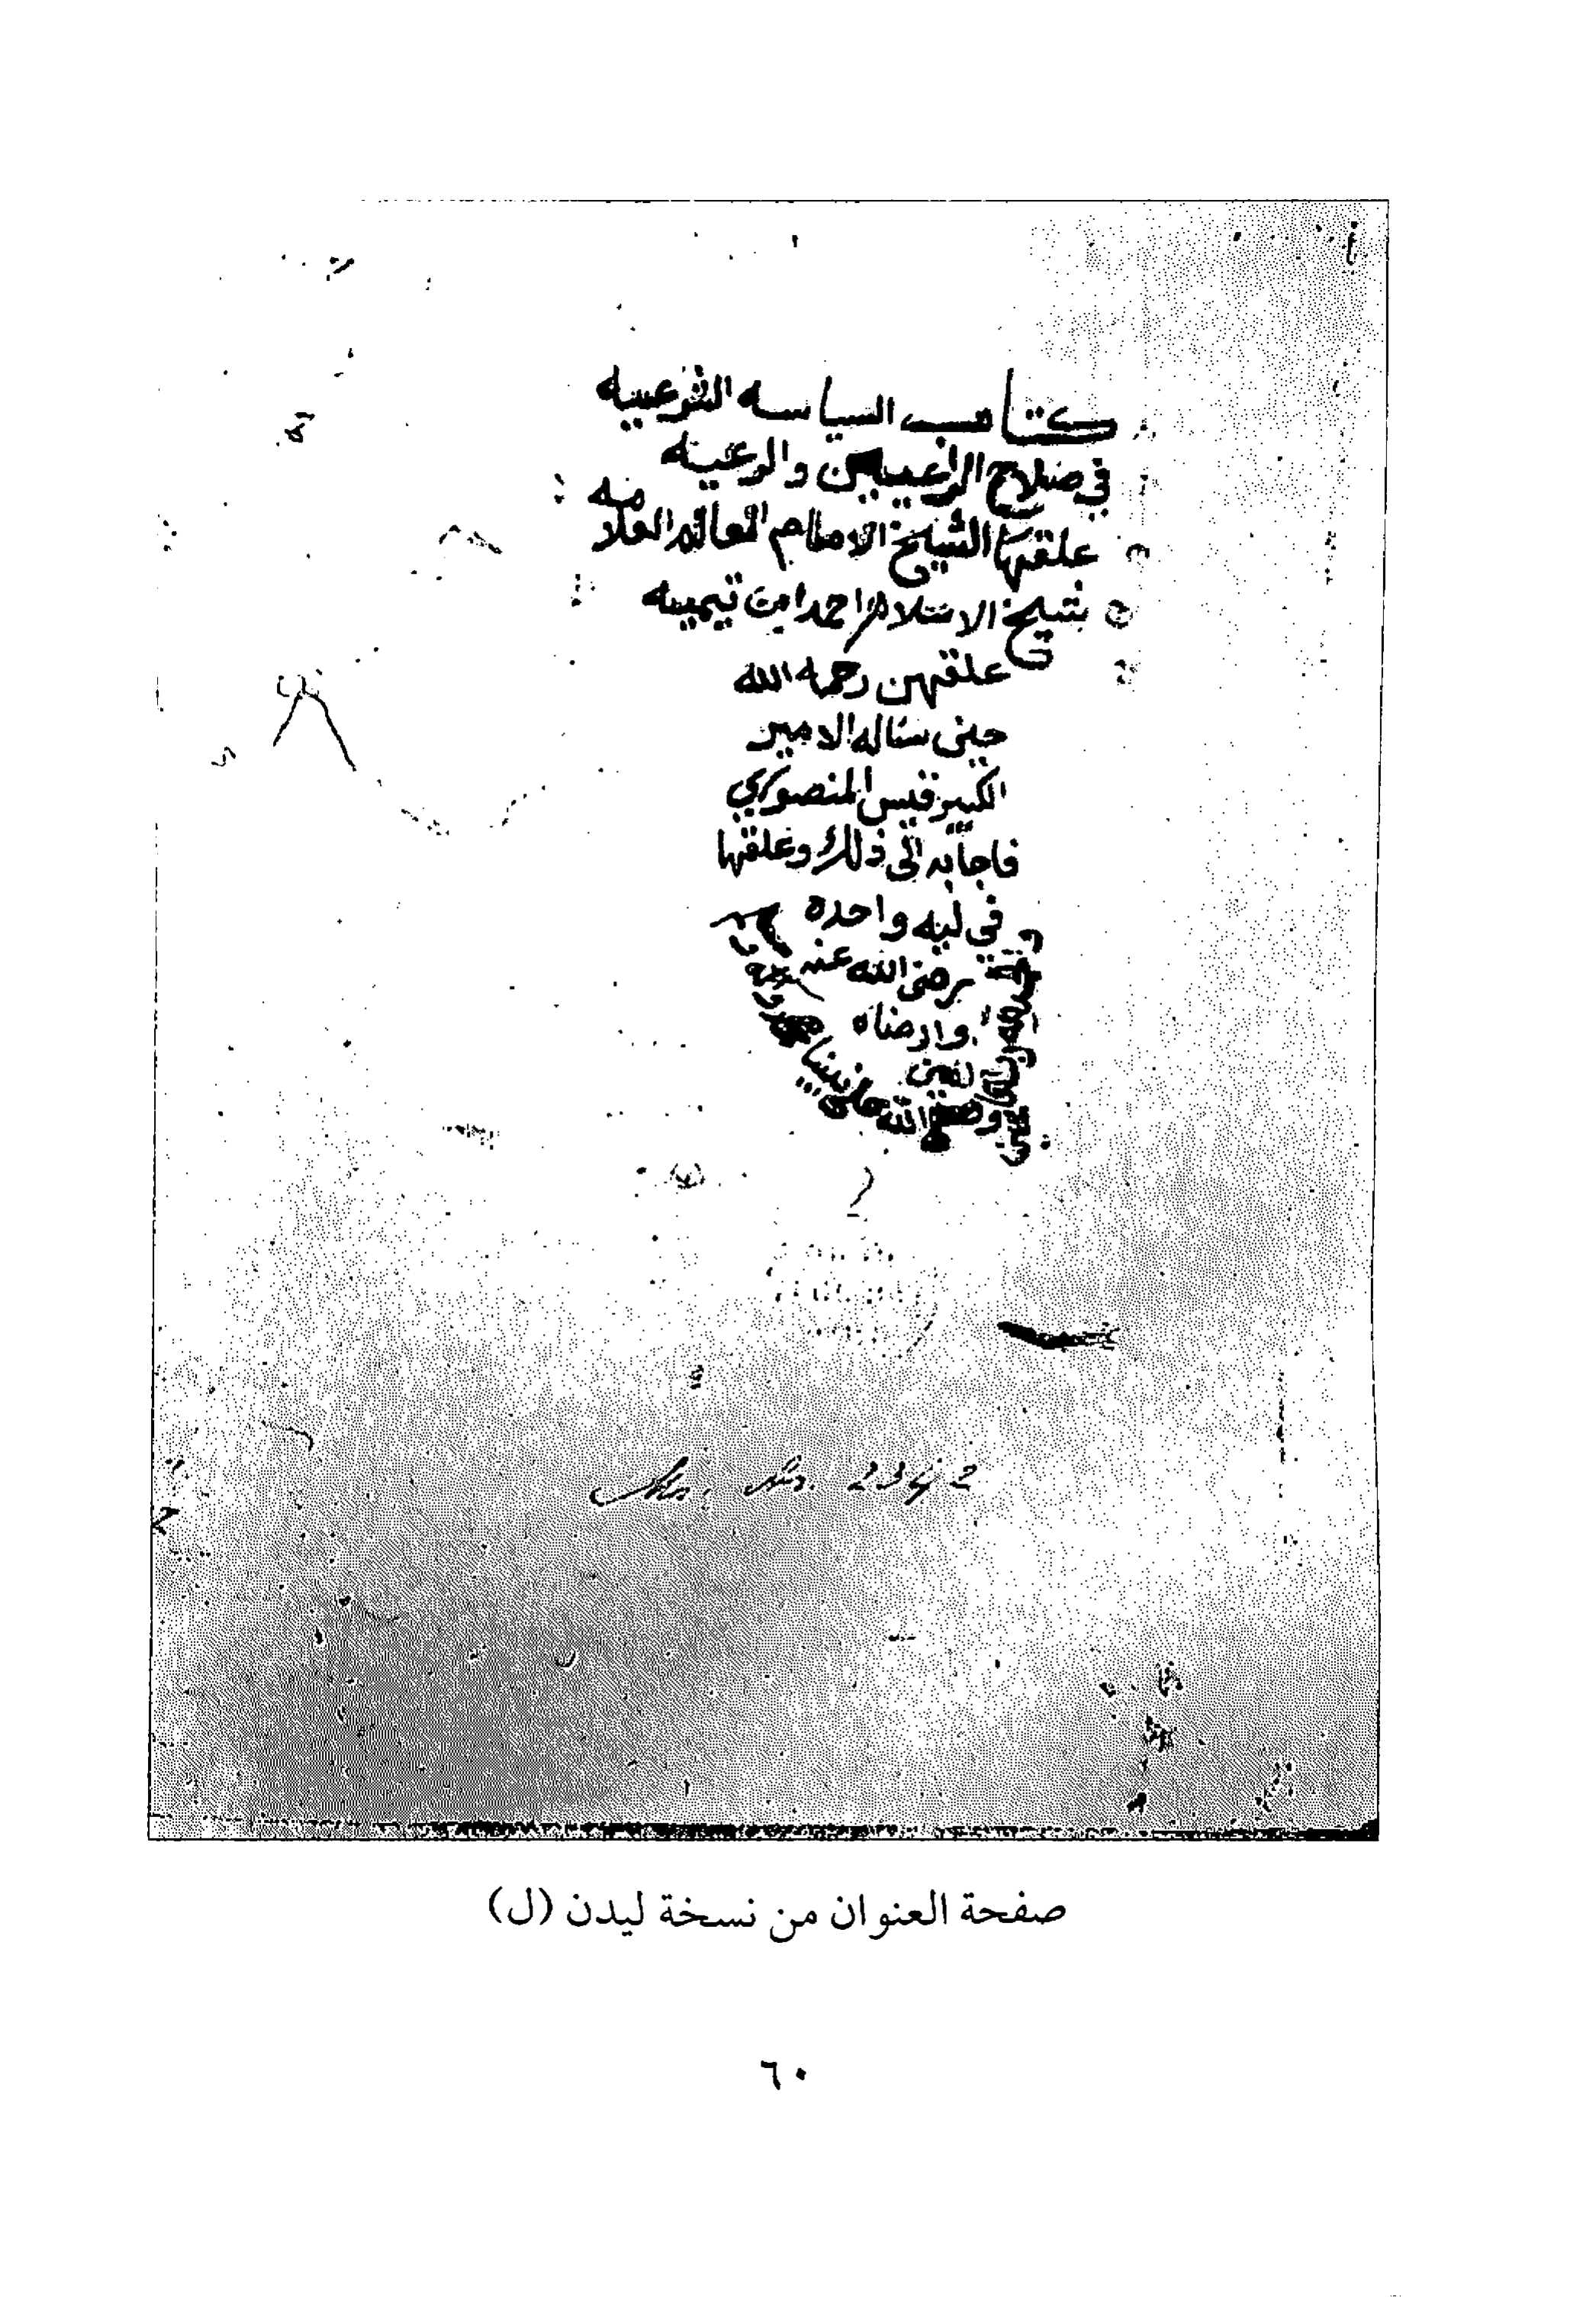 كتاب السياسه الشرعيه
في صلاح الراعيين والرعيه
علقها الشيخ الامام العالم العلامه
شيخ الاسلام احمد ابن تيميه
علقهن رحمه الله
حين ساله الامير
الكبير قيس المنصوري
فاجابه الى ذلك وعلقها
في ليه واحده
رضى الله عنه
وارضاه
امين
وصلى الله على نبينا
2342
صفحة العنوان من نسخة ليدن (ل)
٦٠